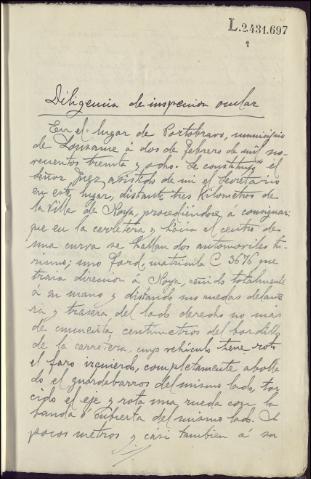 L.2.431.697
Diligencia de inspección ocular
En el lugar de Portobravo, municipio
de Lousame á dos de Febrero de mil no-
vecientos treinta y ocho. Se constituyó el
señor Juez, asistido de mi el Secretario
en este lugar, distante tres kilómetros de
la Villa de Noya, procediéndose á consignar:
que en la carretera y hácia el centro de
una curva se hallan dos automoviles tu-
rismo, uno Ford, matrícula C. 3676 que
traia direccion á Noya, ceñido totalmente
á su mano y distando sus ruedas delante-
ra y trasera del lado derecho no más
de cincuenta centimetros del bordillo
de la carretera, cuyo vehículo tiene roto
el faro izquierdo, completamente abolla-
do el guardabarros del mismo lado, tor-
cido el eje y rota una rueda con la
banda ó cubierta del mismo lado. A
pocos metros y casi tambien á su